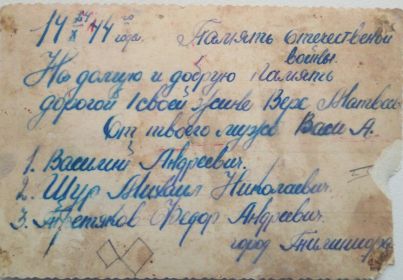 14 X 44 года. Память отечественой
войны.
На долгую и добрую память
дорогой своей жине Вере
От твоего мужа Васи А.
1. Василий Андреевич.
2. Щур Михаил Николаевич.
3. Третяков Федор Андреевич.
город